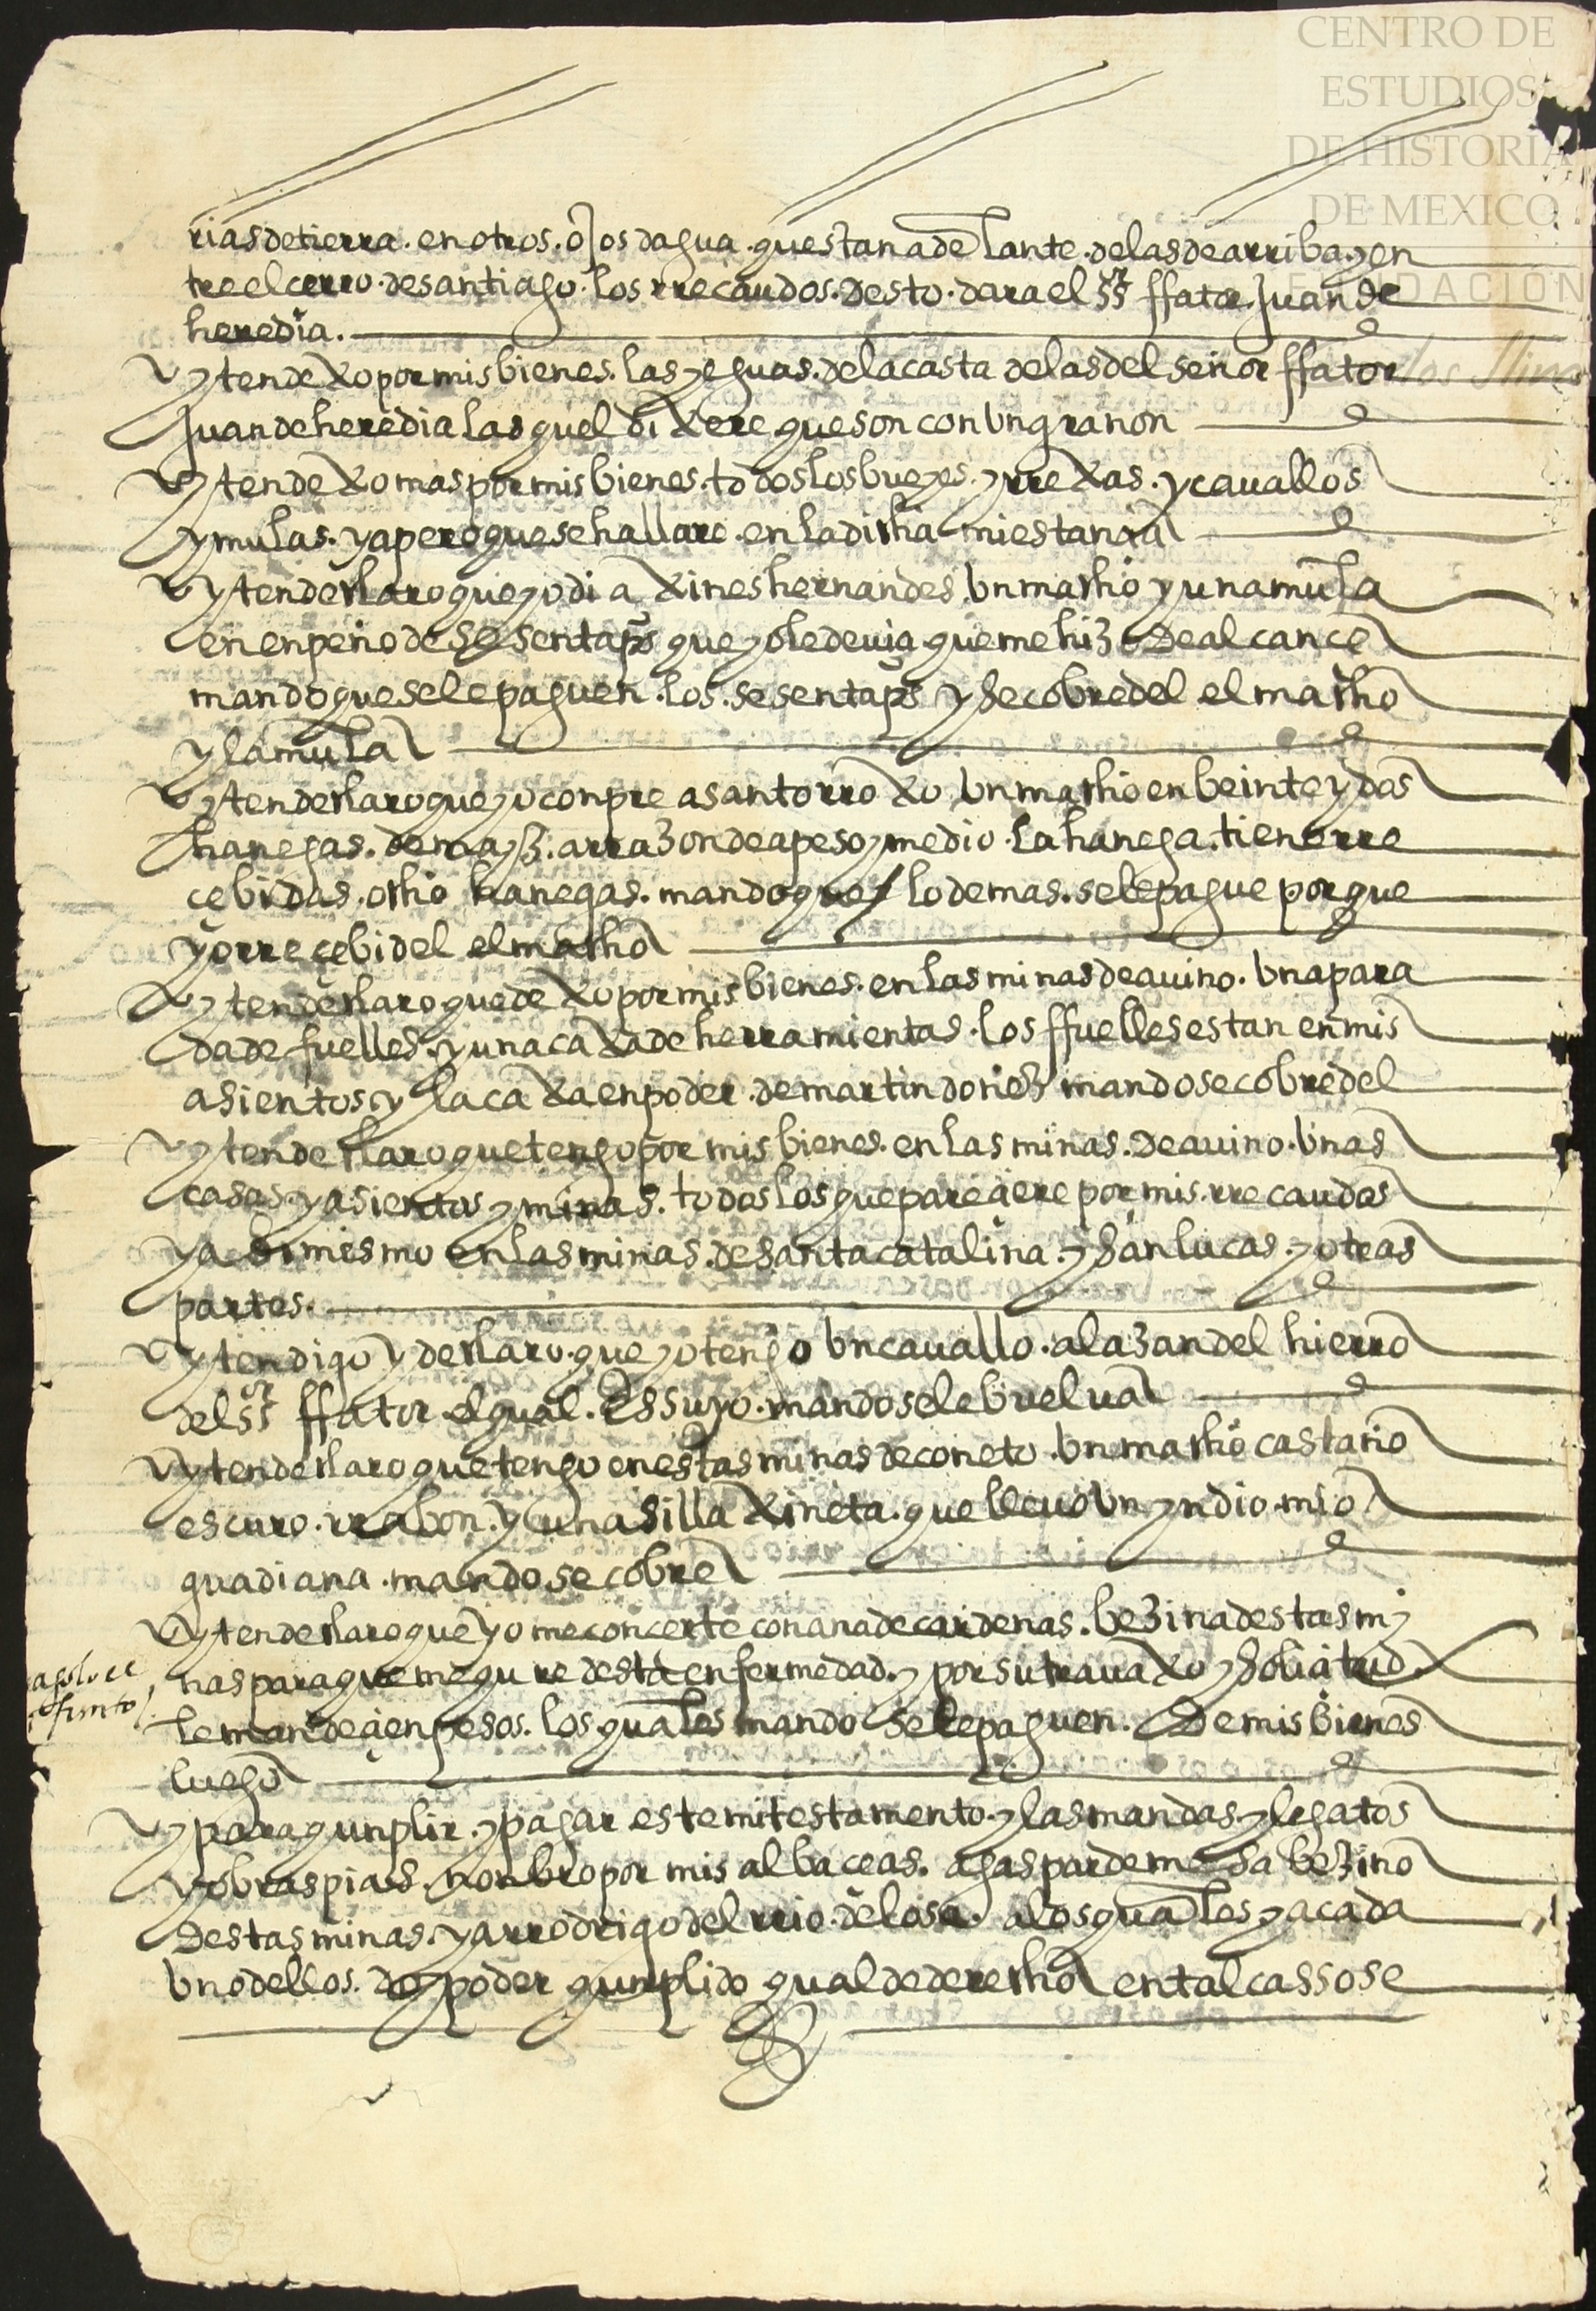 CENTRO DE
ESTUDIOS
DE HISTORIA
DE MEXICO
FUNDACIÓN
Carlos Slim
rias de tierra. en otros. ojos dagua. questan adelante. de las de arriba. y en
tre el çerro. de santiago. los rrecaudos. desto. dara el sr ffator. Juan de
heredia.
yten dexo por mis bienes. las yeguas. de la casta de las del señor ffator
Juan de heredia las quel dixere que son con un garañon
ytem dexo mas por mis bienes. todos los bueyes. y rrexas. y cauallos
y mulas. y apero que se hallare. en la dicha mi estançia
ytem declaro que yo di a xines hernandes. un macho y una mula
en enpeño de sesenta ps que yo le deuia que me hizo de alcançe
mando que se le paguen. los. sesenta ps y se cobre del el macho
y la mula
ytem declaro que yo conpre a santorroxo un macho en beinte y dos
hanegas. de mayz. arrazon de a peso y medio. la hanega. tiene rre
çebidas. ocho hanegas. mando que lo demas. se le pague porque
yo rreçebi del el macho
ytem declaro que dexo por mis bienes. en las minas de auino. una para
da de fuelles. y una caxa de herramientas. los ffuelles estan en mis
asientos. y la caxa en poder. de martin doñez mando se cobre del
ytem declaro que tengo por mis bienes. en las minas. de auino. unas
casas. y asientos y minas. todos los que pareçiere por mis. rrecaudos
y a si mesmo en las minas. de santa catalina. y san lucas. y otras
partes.
ytem digo y declaro. que yo tengo un cauallo. alazan del hierro
del sr ffator. el qual. es suyo. mando se le buelua
ytem declaro que tengo en estas minas de coneto un macho castaño
escuro. rrabon. y una silla xineta. que lleuo un yndio. mio
guadiana. mando se cobre
ytem declaro que yo me conçerte con ana de cardenas. bezina destas mi
nas para que me qure desta enfermedad. y por su trauaxo y soliçitud
le mande çien pesos. los quales mando se le paguen. de mis bienes
luego
y para qunplir. y pagar este mi testamento. y las mandas y legatos
y obras pias. nonbro por mis albaçeas. a gaspar de mesa bezino
destas minas. y a rrodrigo del rrio. de losa. a los quales y a cada
uno dellos. doy poder qunplido qual de derecho en tal casso se